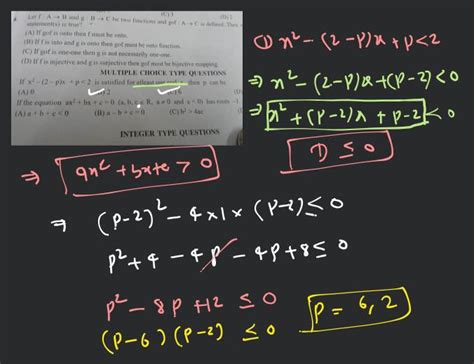 Let f : A → B and g : B → C be two functions and gof : A → C is defined. Then
statement(s) is true?
(A) If gof is onto then f must be onto.
(B) If f is into and g is onto then gof must be onto function.
(C) If gof is one-one then g is not necessarily one-one.
(D) If f is injective and g is surjective then gof must be bijective mapping.
MULTIPLE CHOICE TYPE QUESTIONS
If x² – (2 – p)x + p < 2 is satisfied for atleast one real x, then p can be
(A) 0
If the equation ax² + bx + c = 0 (a, b, c ∈ R, a ≠ 0 and a < 0) has roots
(A) a + b + c < 0 (B) a – b + c (C) b² > 4ac
INTEGER TYPE QUESTIONS
① x² - (2-p)x + p < 2
⇒ x² - (2-p)x + (p-2) < 0
⇒ x² + (p-2)x + p-2 < 0
D ≤ 0
⇒ ax² + bx + c > 0
⇒ (p-2)² - 4×1×(p-2) ≤ 0
p² + 4 - 4p - 4p + 8 ≤ 0
p² - 8p + 12 ≤ 0
(p-6)(p-2) ≤ 0
p = 6, 2